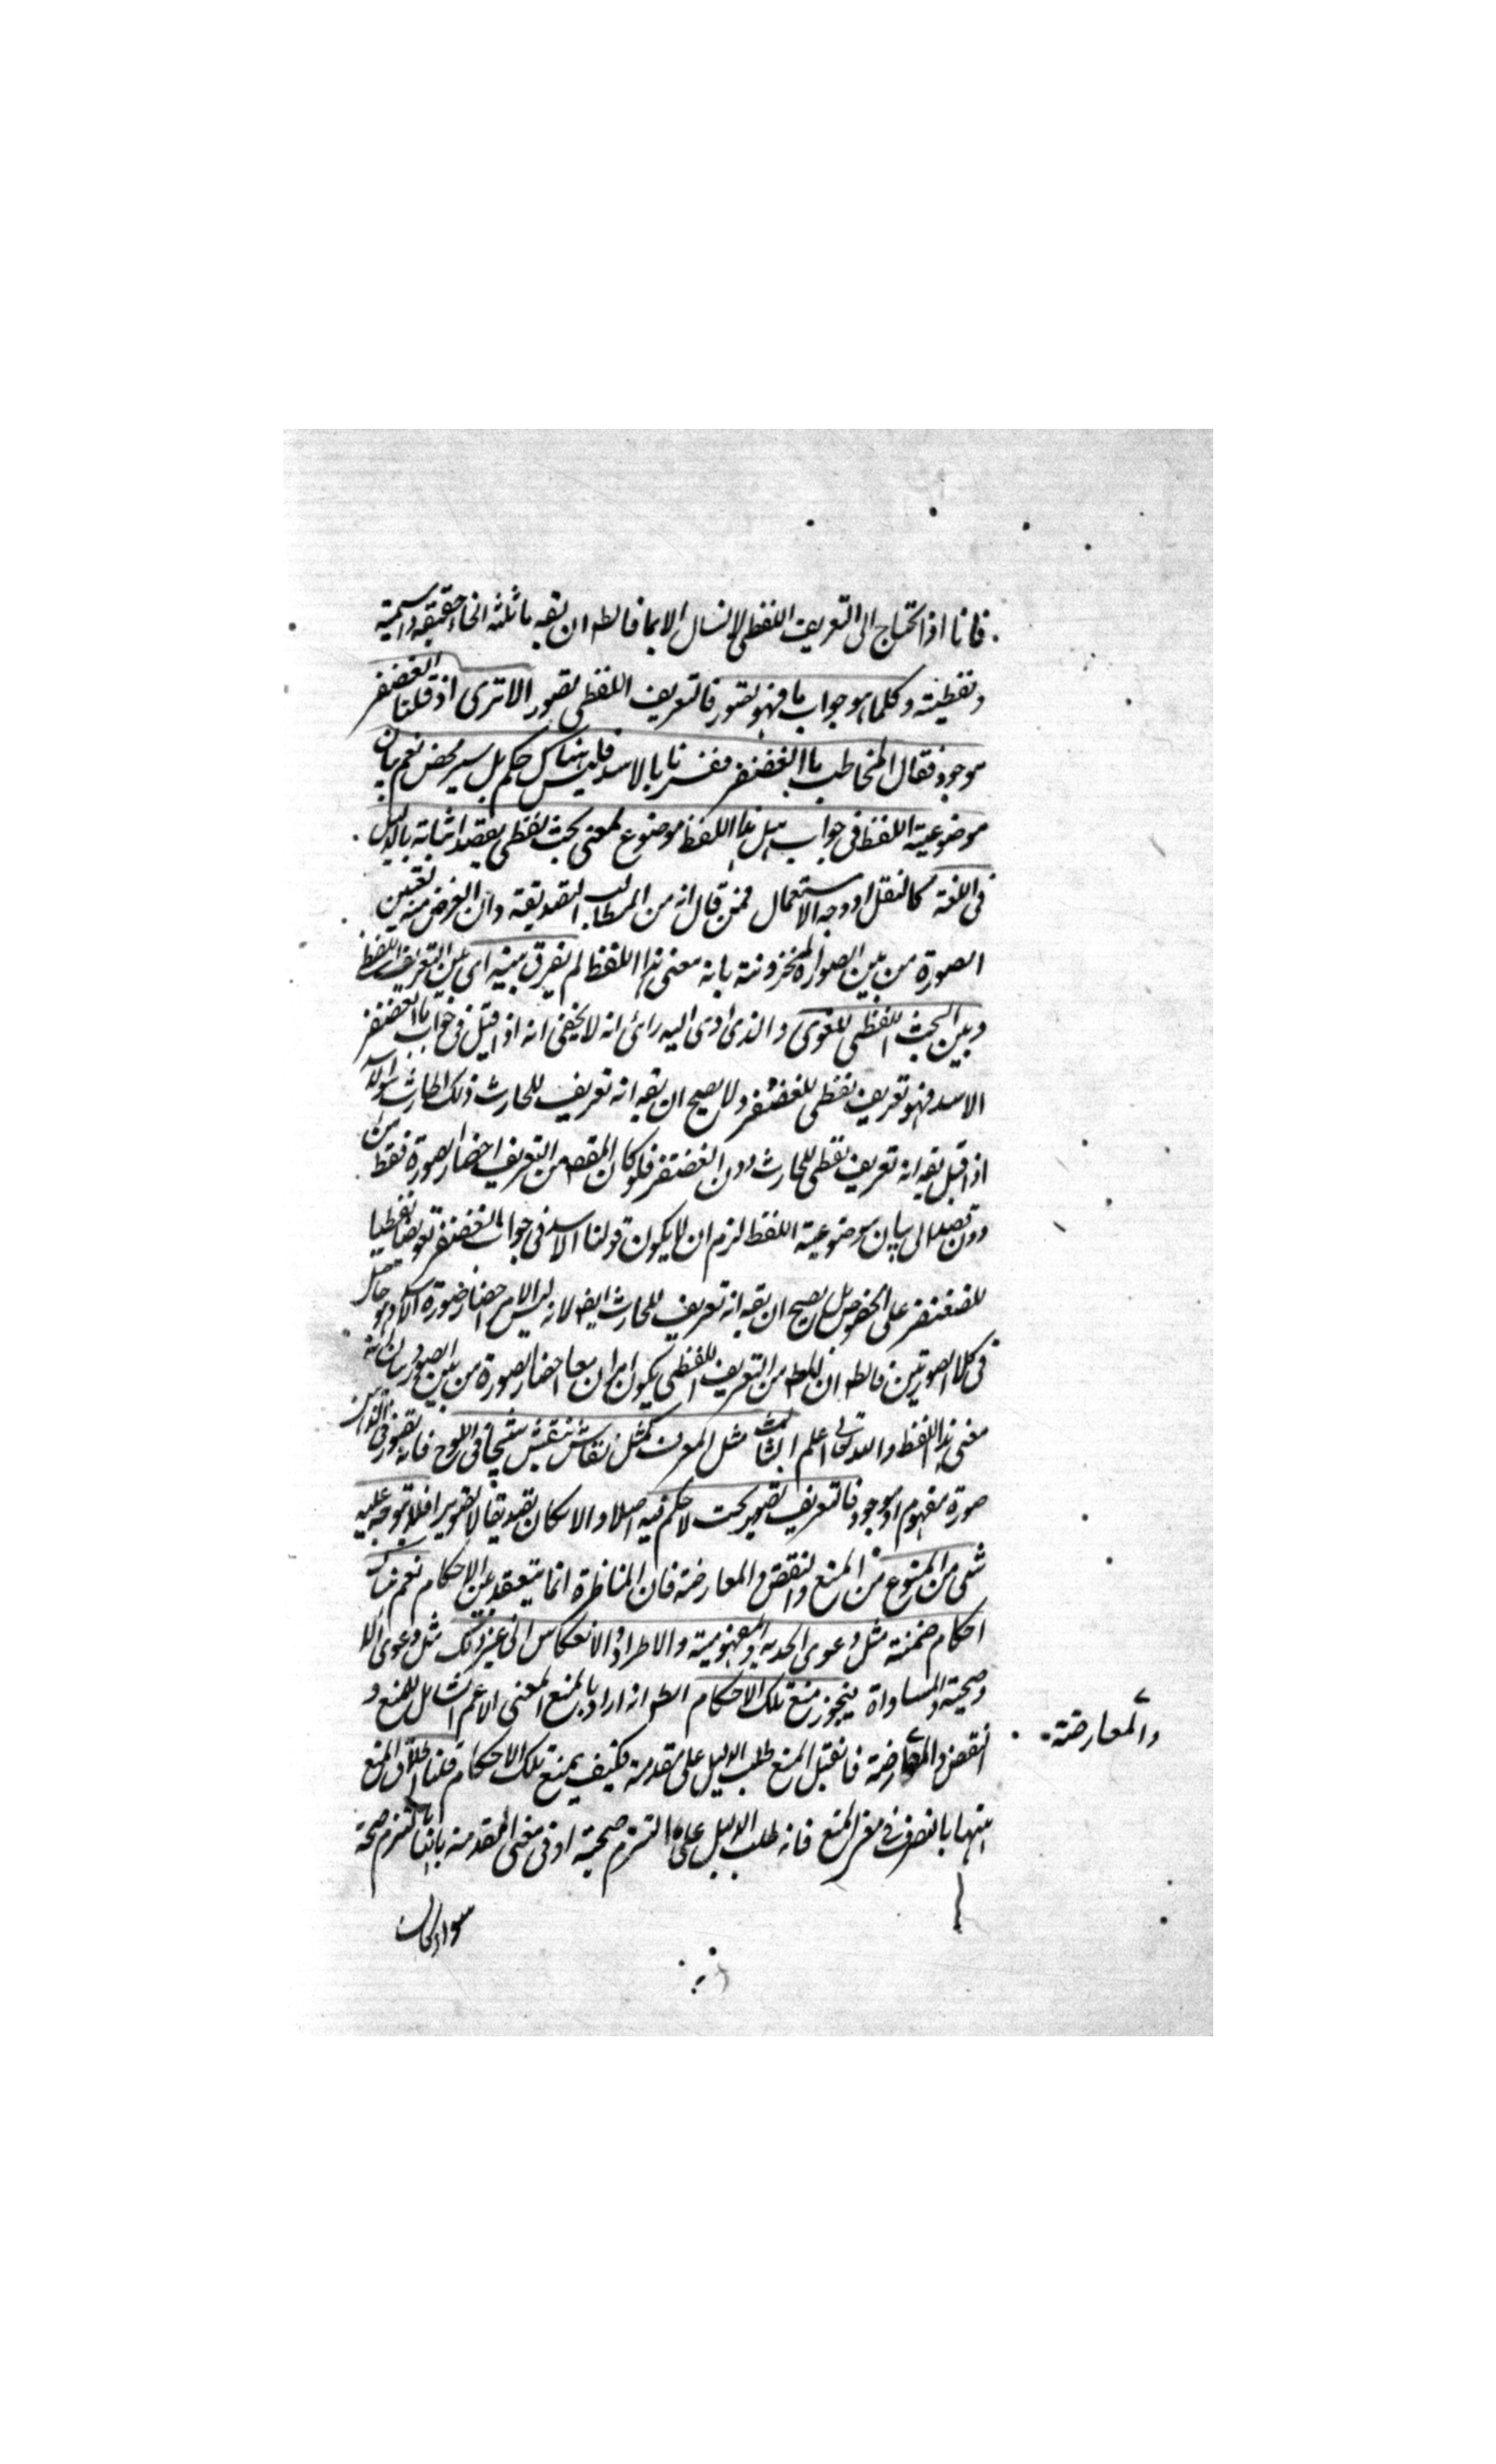 فانا اذا نحتاج الى التعريف اللفظى لا نسأل الا بما فالظ ان يقه ما ثلثة انحاء حقيقية واسمية
ولفظية وكلما هو جواب ما فهو تصور فالتعريف اللفظى تصور الا ترى اذا قلنا الغضنفر
موجود فقال المخاطب ما الغضنفر ففسرناه بالاسد فليس هناك حكم بل تصوير محض نعم بيان
موضوعية اللفظ فى جواب هل هذا اللفظ موضوع لمعنى بحث لفظى يقصد اثباته بالدليل
فى اللغة كالنقل او وجه الاستعمال فمن قال انه من المطالب التصديقية وان الغرض منه تعيين
الصورة من بين الصور المخزونة بانه معنى هذا اللفظ لم يفرق بينه اى بين التعريف اللفظى
وبين البحث اللفظى اللغوى والذى ادى اليه رائى انه لا يخفى انه اذا قيل فى جواب ما الغضنفر
الاسد فهو تعريف لفظى للغضنفر ولا يصح ان يقه انه تعريف للحارث
اذا قيل يقه انه تعريف لفظى للحارث دون الغضنفر فلو كان المقصه من التعريف احضار الصورة فقط من
دون قصد الى بيان موضوعية اللفظ لزم ان لا يكون قولنا الاسد فى جواب ما الغضنفر تعريفا لفظيا
للغضنفر على الخصوص بل يصح ان يقه انه تعريف للحارث ايضه لانه ليس الا احضار صورة الاسد وهو حاصل
فى كلا الصورتين فالظ ان المطه من التعريف اللفظى يكون امران معا احضار الصورة من بين الصور وبيان انه
معنى هذا اللفظ والله تعالى اعلم الثالث مثل المعرف كمثل نقاش ينقش شبحا فى اللوح فانه تصور فى الذهن
صورة مفهوم او موجود فالتعريف تصوير بحت لا حكم فيه اصلا والا لكان تصديقا لا تصويرا فلا يتوجه عليه
شىء من المنوع من المنع والنقض والمعارضة فان المناظرة انما يتعقد بين الاحكام نعم هناك
احكام ضمنية مثل دعوى الحدية والمفهومية والاطراد والانعكاس الى غير ذلك مثل دعوى
وصحيته والمساواة فيجوز منع تلك الاحكام الظ انه اراد بالمنع المعنى الاعم الشامل للمنع و
النقض والمعارضة فان قيل المنع طلب الدليل على مقدمة فكيف يمنع تلك الاحكام قلنا اطلاق المنع
والمعارضة
ههنا بالتصرف فى معنى المنع فانه طلب الدليل على ما التزم صحته او فى معنى المقدمة بانها ما التزم صحته
سواء كان